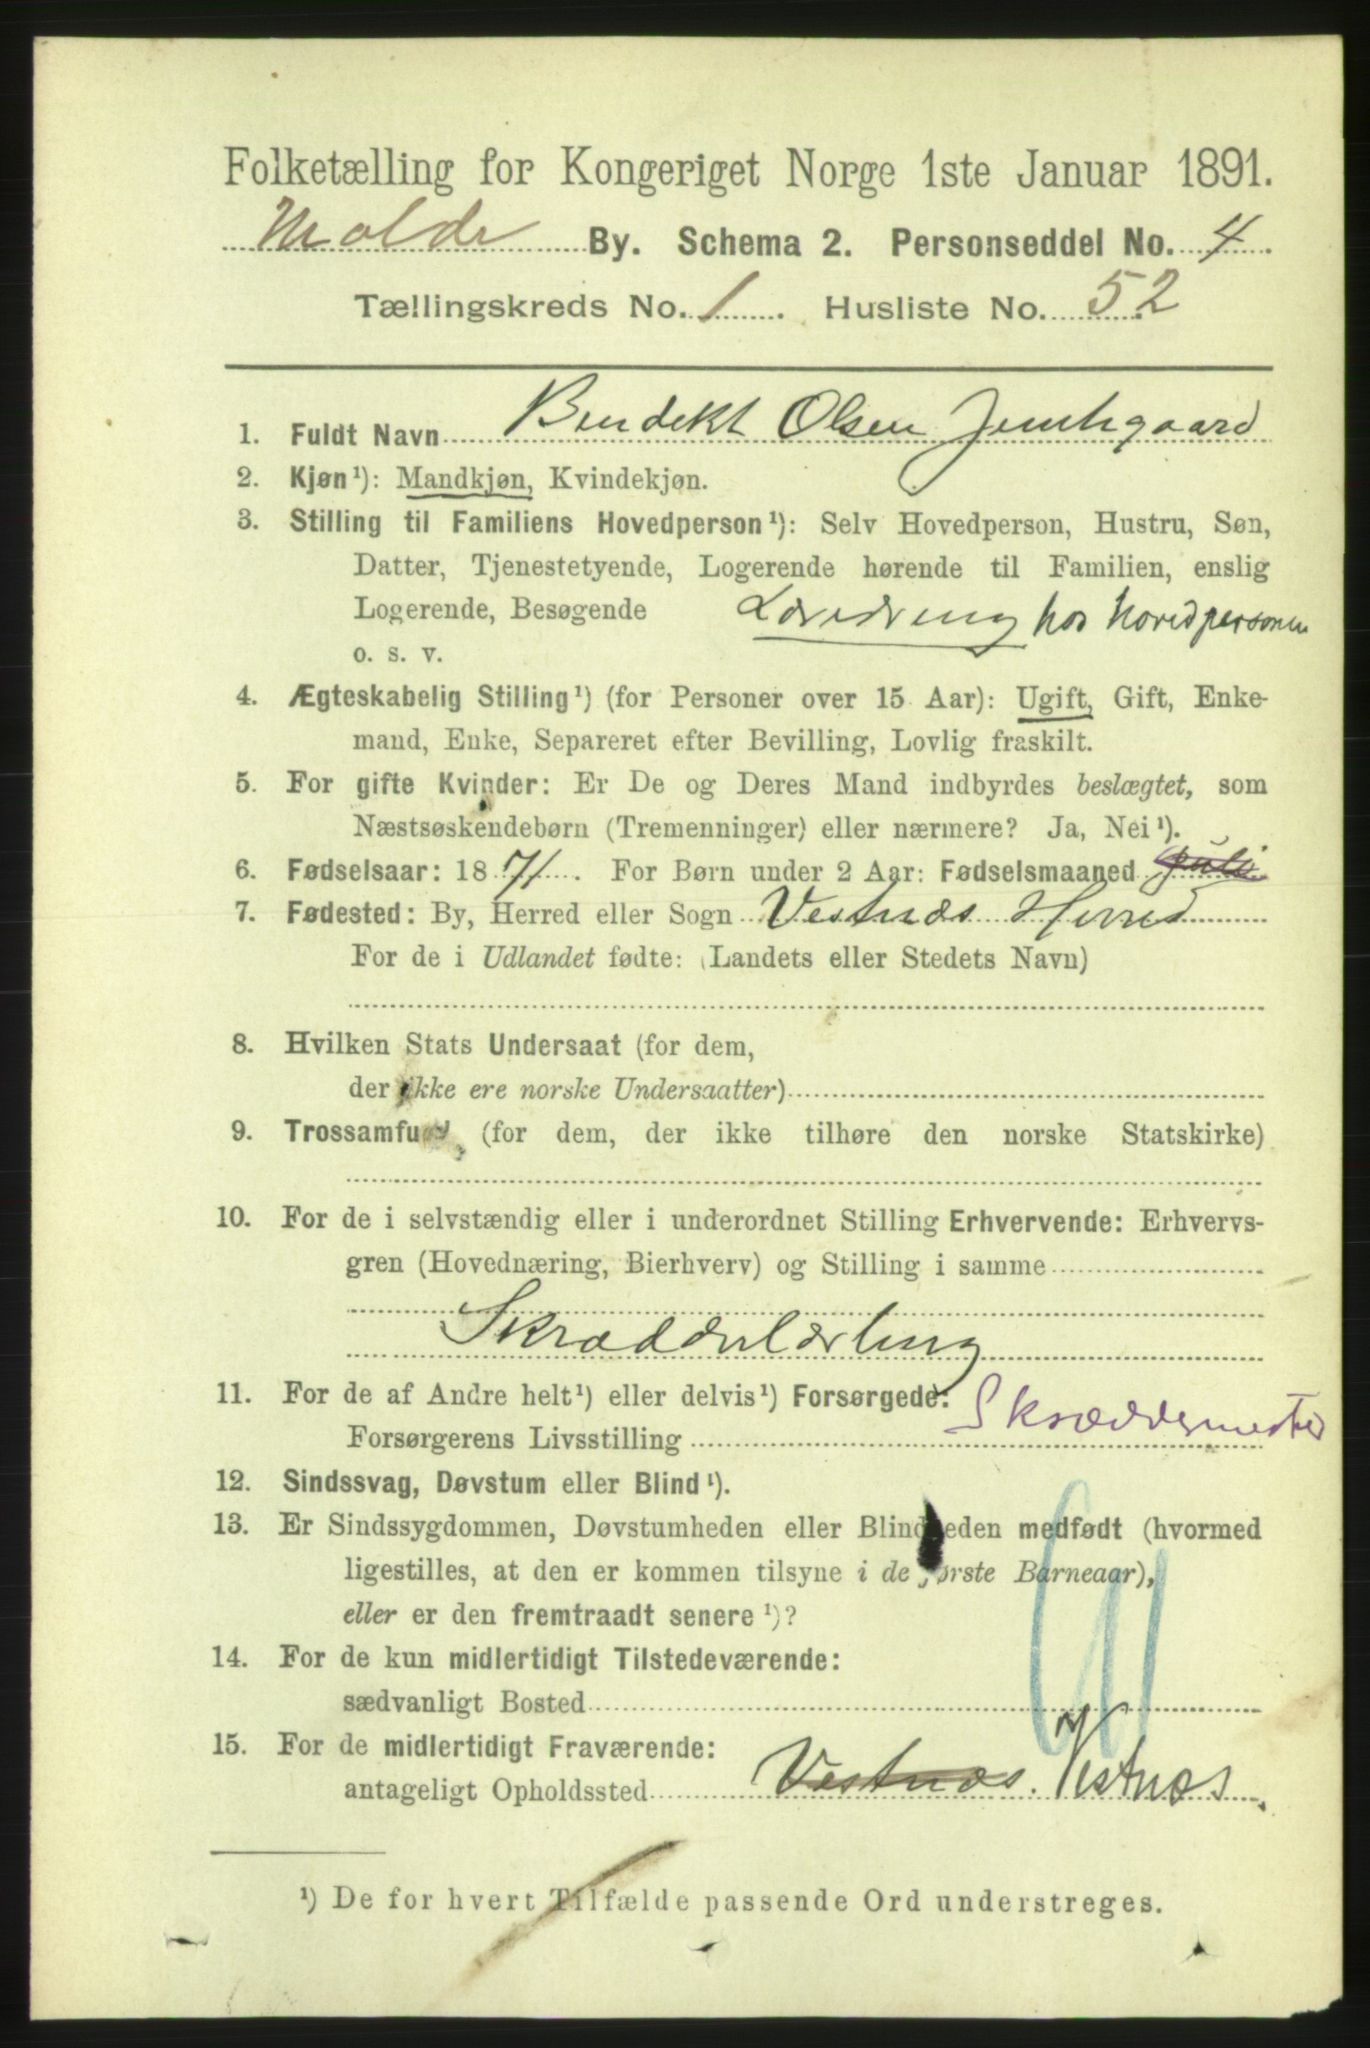 Folketælling for Kongeriget Norge 1ste Januar 1891.
Molde By. Schema 2. Personseddel No. 4.
Tællingskreds No. 1. Husliste No. 52
1. Fuldt Navn Bendekt Olsen
2. Kjøn¹): Mandkjøn, Kvindekjøn.
3. Stilling til Familiens Hovedperson¹): Selv Hovedperson, Hustru, Søn,
Datter, Tjenestetyende, Logerende hørende til Familien, enslig
Logerende, Besøgende hos Hovedpersonen
o. s. v.
4. Ægteskabelig Stilling¹) (for Personer over 15 Aar): Ugift, Gift, Enke-
mand, Enke, Separeret efter Bevilling, Lovlig fraskilt.
5. For gifte Kvinder: Er De og Deres Mand indbyrdes beslægtet, som
Næstsøskendebørn (Tremenninger) eller nærmere? Ja, Nei¹).
6. Fødselsaar: 1871. For Børn under 2 Aar: Fødselsmaaned juli
7. Fødested: By, Herred eller Sogn Vestnæs Herred
For de i Udlandet fødte: (Landets eller Stedets Navn)
8. Hvilken Stats Undersaat (for dem,
der ikke ere norske Undersaatter)
9. Trossamfund (for dem, der ikke tilhøre den norske Statskirke)
10. For de i selvstændig eller i underordnet Stilling Erhvervende: Erhvervs-
gren (Hovednæring, Bierhverv) og Stilling i samme
Skrædderlærling
11. For de af Andre helt¹) eller delvis¹) Forsørgede: Skræddermester
Forsørgerens Livsstilling
12. Sindssvag, Døvstum eller Blind¹).
13. Er Sindssygdommen, Døvstumheden eller Blindheden medfødt (hvormed
ligestilles, at den er kommen tilsyne i de første Barneaar),
eller er den fremtraadt senere¹)?
14. For de kun midlertidigt Tilstedeværende:
sædvanligt Bosted
15. For de midlertidigt Fraværende:
antageligt Opholdssted Vestnæs. Vestnæs.
¹) De for hvert Tilfælde passende Ord understreges.